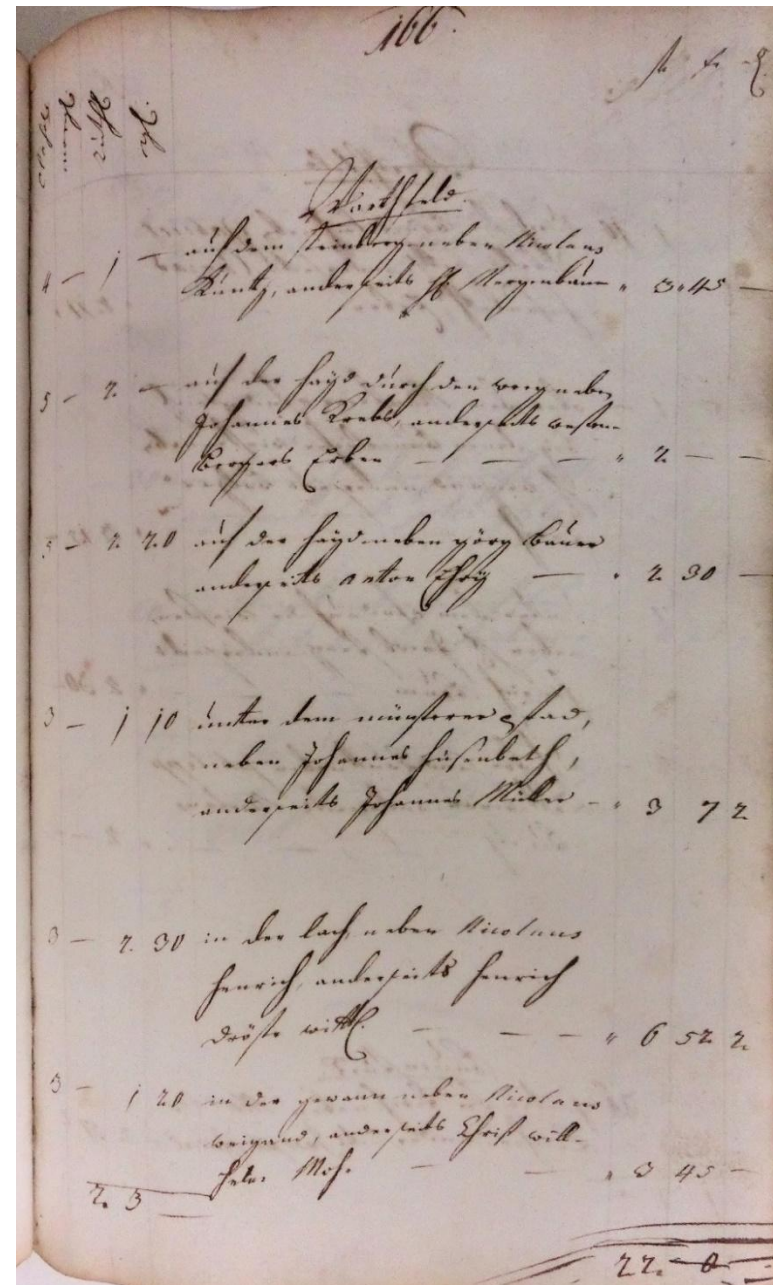 166.
Viertl
Wierthfeld
4 – 1 – auf dem steinberg neben Nicolaus
Küntz, anderseits Bergenbäuer " 3 " 45 –
5 – 2 – auf der Hayd durch den weeg neben
Johannes Krebs, anderseits
Erben – – – " 2 – –
5 – 2 20 auf der Hayd neben görg Bauer
anderseits anton Ihrig – " 2 30 –
3 – 1 10 unter dem münsterer pfad,
neben Johannes Husenbeth,
anderseits Johannes Müller – " 3 7 2
3 – 2 30 in der lach, neben Nicolaus
Henrich, anderseits Henrich
Dröste wittl. – – – " 6 52 2
3 – 1 20 in der gewann neben Nicolaus
weigand, anderseits Christ will-
helm Moh. – – " 3 45 –
2 3 –
22 – 0 –